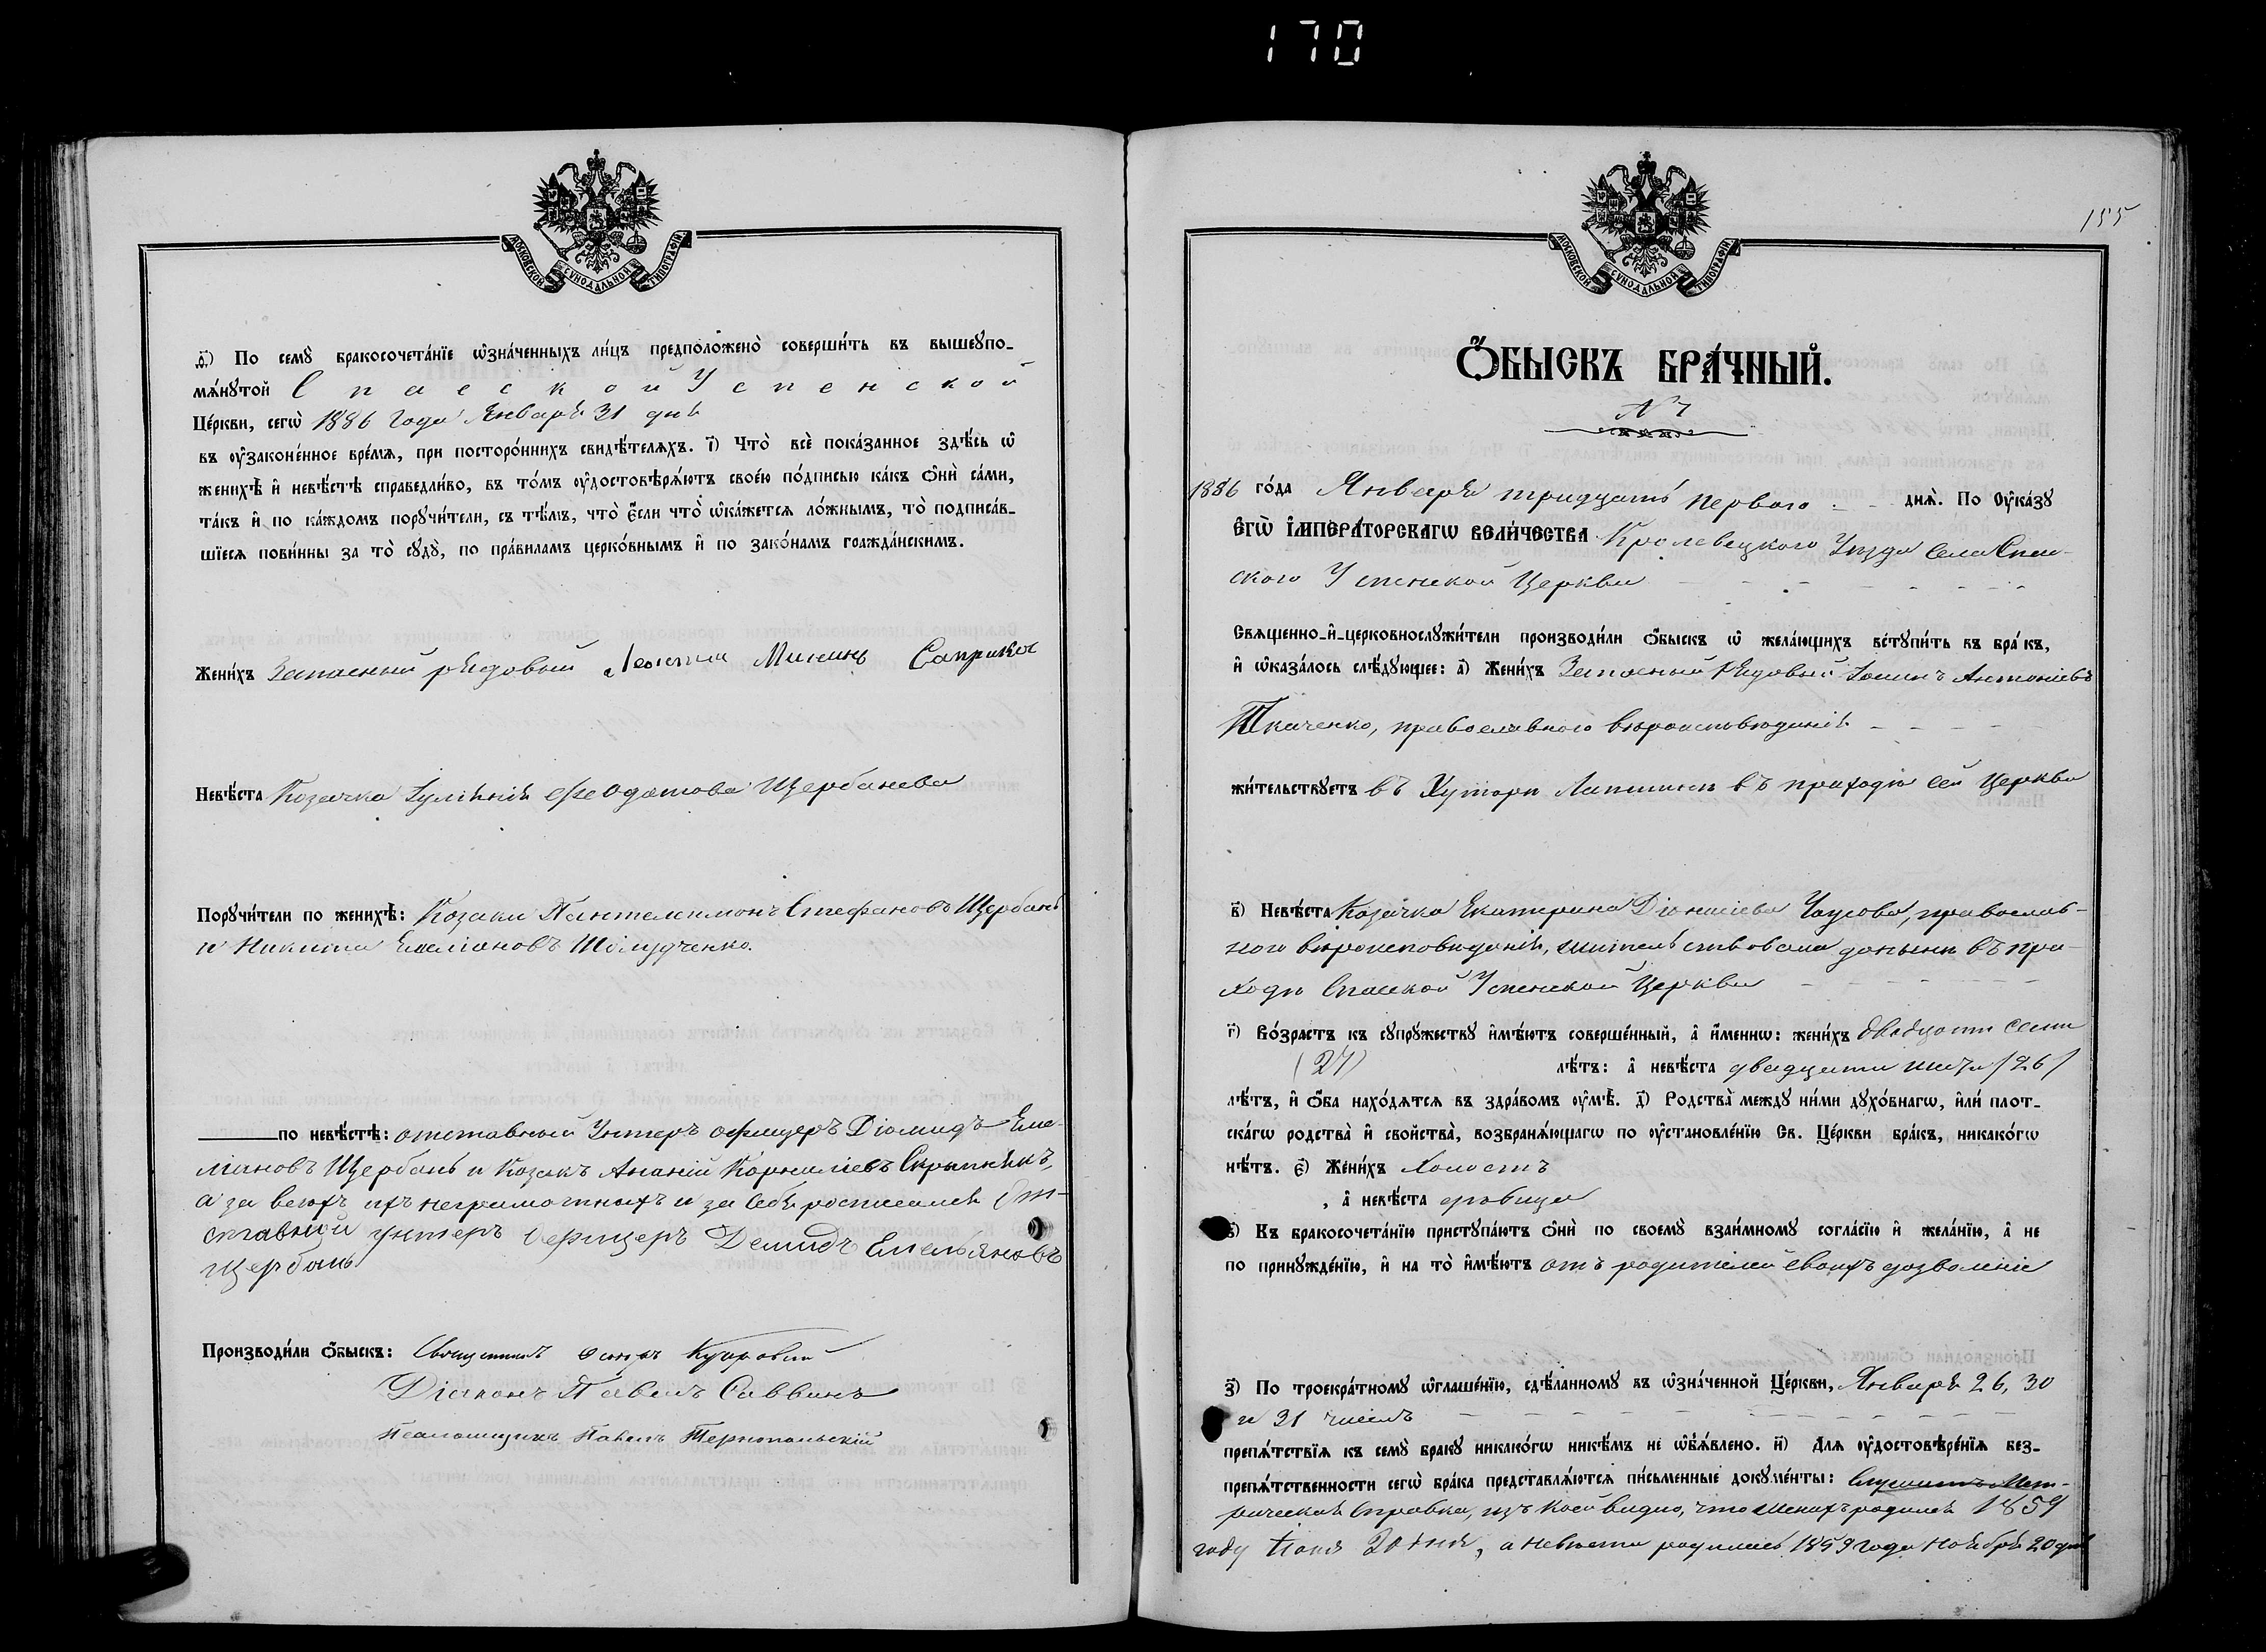 170
МОСКОВСКОЙ СѴНОДАЛЬНОЙ ТИПОГРАФІИ
д҃і) По семꙋ̀ бракосочета́нїе ѡ҆зна́ченныхъ ли́цъ предположено̀ соверши́ть въ вышеꙋпо-
мѧ́нꙋтой Спасской Успенской
Це́ркви, сегѡ̀ 1886 года Января 31 дня
въ ᲂу҆законе́нное вре́мѧ, при посторо́ннихъ свидѣ́телѧхъ. і҃) Что̀ всѐ пока́занное здѣ́сь ѡ҆
женихѣ̀ и҆ невѣ́стѣ справедли́во, въ то́мъ ᲂу҆достовѣрѧ́ютъ свое́ю по́дписью ка́къ ѻ҆нѝ са́ми,
та́къ и҆ по ка́ждомъ порꙋчи́тели, съ тѣ́мъ, что̀ є҆́сли что̀ ѡ҆ка́жетсѧ ло́жнымъ, то̀ подписа́в-
шїесѧ пови́нны за то̀ сꙋдꙋ̀, по пра́виламъ церко́внымъ и҆ по зако́намъ гражда́нскимъ.
Жени́хъ Запасный рядовый Леонтий Мининъ
Невѣ́ста Козачка Іуліанія Феодотова Щербанева
Порꙋчи́тели по женихѣ̀: Козаки Пантелеимонъ Стефановъ Щербань
и Никита Емеліановъ Шолудченко.
по невѣ́стѣ: отставный Унтеръ офицеръ Діомидъ Еме-
ліановъ Щербань и Козакъ Ананій Корниліевъ Скрыпникъ,
а за всѣхъ ихъ неграмотныхъ и за себя росписался От-
ставный унтеръ Офицеръ Демидъ Емельяновъ
Щербань
Производи́ли ѻ҆́быскъ: Священникъ Ѳеодоръ
Діаконъ Павелъ Саввинъ
Псаломщикъ Павелъ Тернопольскій
155
МОСКОВСКОЙ СѴНОДАЛЬНОЙ ТИПОГРАФІИ
Ѻ҆́БЫСКЪ БРА́ЧНЫЙ.
№ 7
1886 го́да Января тридцать первого днѧ̀. По Оу҆ка́зꙋ
Є҆ГѠ̀ І҆МПЕРА́ТОРСКАГѠ ВЕЛИ́ЧЕСТВА Кролевецкого Уѣзда Села Спас-
ского Успенской Церкви
Свѧщенно-и҆-церковнослꙋжи́тели производи́ли ѻ҆́быскъ ѡ҆ жела́ющихъ встꙋпи́ть въ бра́къ,
и҆ ѡ҆каза́лось слѣ́дꙋющее: а҃) Жени́хъ Запасный Рядовый Антоніевъ
Ткаченко, православного вѣроисповѣданія
жи́тельствꙋетъ въ Хуторѣ Лапшинѣ въ приходѣ сей Церкви
в҃) Невѣ́ста Козачка Екатерина Діонисіева Чаусова, православ-
ного вѣроисповѣданія, жительствовала донынѣ въ при-
ходѣ Спасской Успенской Церкви
г҃) Во́зрастъ къ сꙋпрꙋ́жествꙋ и҆мѣ́ютъ соверше́нный, а҆ и҆́меннѡ: жени́хъ двадцати семи
(27) лѣ́тъ: а҆ невѣ́ста двадцати шести /26/
лѣ́тъ, и҆ ѻ҆́ба нахо́дѧтсѧ въ здра́вомъ ᲂу҆мѣ̀. д҃) Родства̀ междꙋ ни́ми дꙋхо́внагѡ, и҆лѝ плот-
ска́гѡ родства̀ и҆ свойства̀, возбранѧ́ющагѡ по ᲂу҆становле́нїю Св. Це́ркви бра́къ, никако́гѡ
нѣ́тъ. є҃) Жени́хъ холостъ
, а҆ невѣ́ста дѣвица
ѕ҃) Къ бракосочета́нїю пристꙋпа́ютъ ѻ҆нѝ по своемꙋ̀ взаи́мномꙋ согла́сїю и҆ жела́нїю, а҆ не
по принꙋжде́нїю, и҆ на то̀ и҆мѣ́ютъ отъ родителей своихъ дозволеніе
з҃) По троекра́тномꙋ ѡ҆глаше́нїю, сдѣ́ланномꙋ въ ѡ҆зна́ченной Це́ркви, Января 26, 30
и 31 числъ
препѧ́тствїѧ къ семꙋ̀ бракꙋ никако́гѡ никѣ́мъ не ѡ҆б̾ѧ́влено. и҃) Длѧ ᲂу҆достовѣре́нїѧ без-
препѧ́тственности сегѡ̀ бра́ка представлѧ́ютсѧ пи́сьменные докꙋме́нты: Служитъ Мет-
рическая справка, изъ коей видно, что женихъ родился 1859
году Іюня 20 дня, а невѣста родилась 1859 года Ноября 20 дня